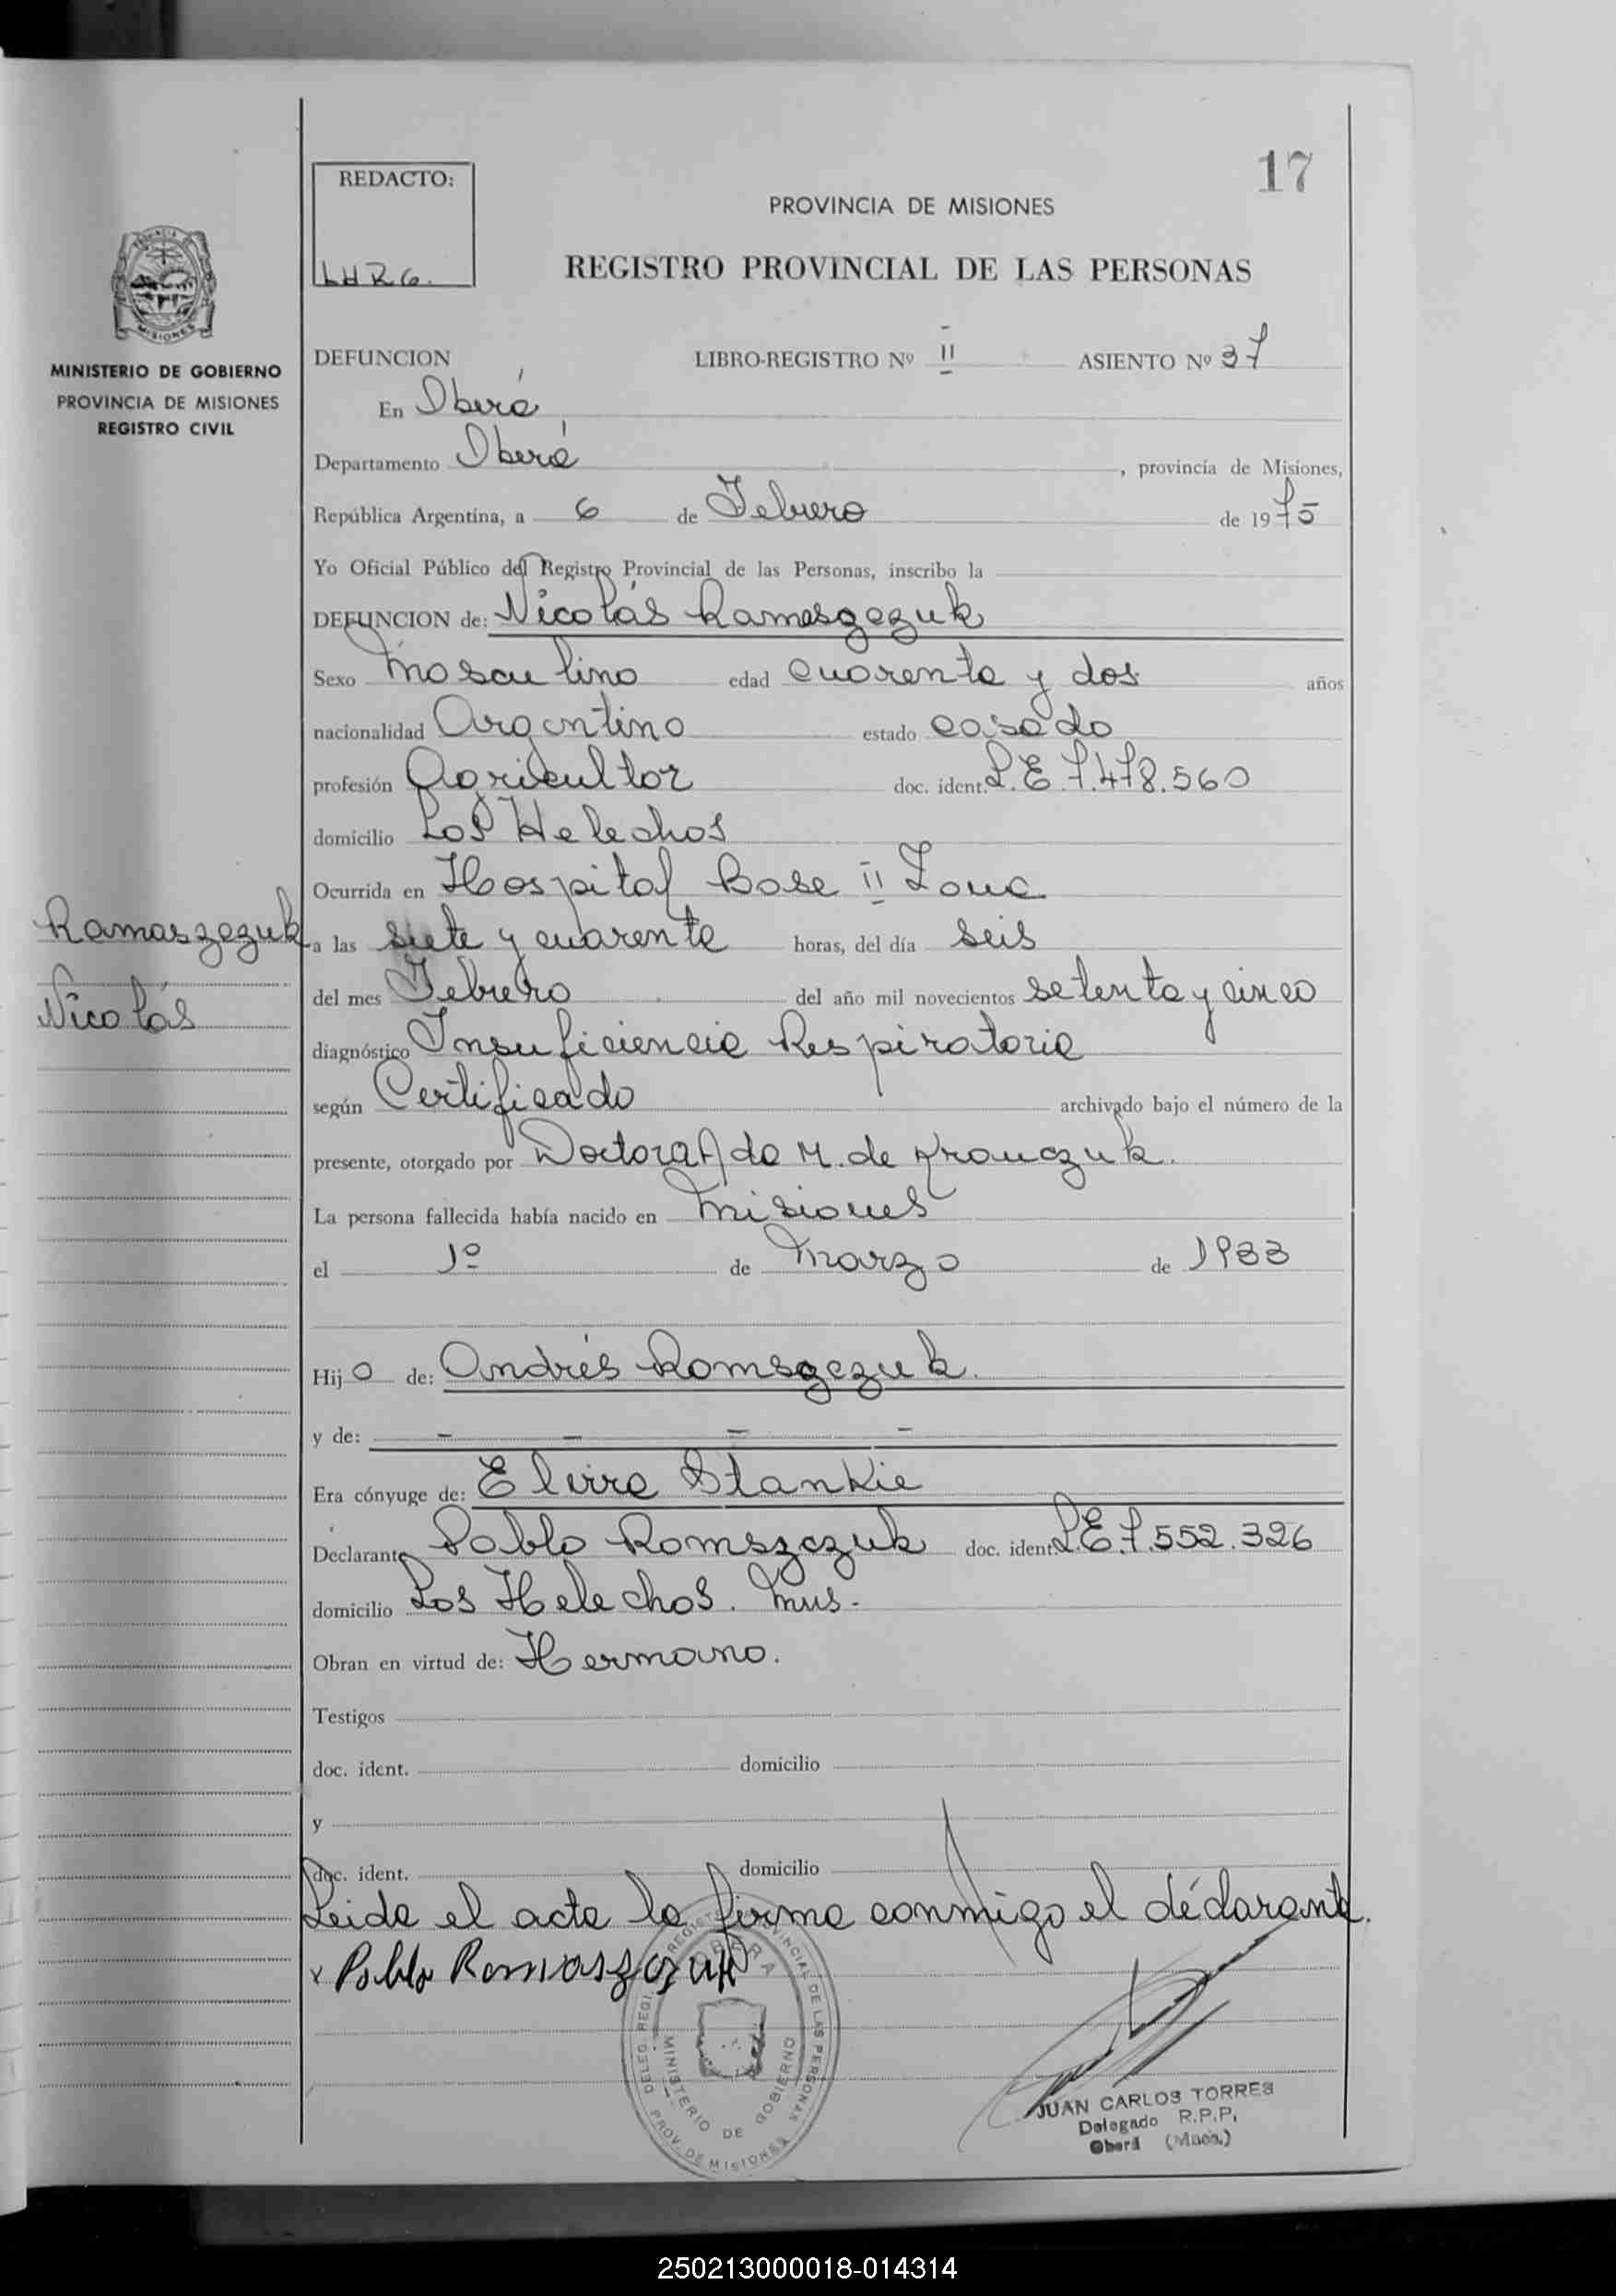 17
REDACTO:
LHRG.
PROVINCIA DE MISIONES
REGISTRO PROVINCIAL DE LAS PERSONAS
MINISTERIO DE GOBIERNO
PROVINCIA DE MISIONES
REGISTRO CIVIL
DEFUNCION LIBRO-REGISTRO Nº II ASIENTO Nº 37
En Oberá
Departamento Oberá, provincia de Misiones,
República Argentina, a 6 de Febrero de 1975
Yo Oficial Público del Registro Provincial de las Personas, inscribo la
DEFUNCION de: Nicolás Ramaszezuk
Sexo Masculino edad Cuarenta y dos años
nacionalidad Argentino estado casado
profesión Agricultor doc. ident. L.E 7.478.560
domicilio Los Helechos
Ocurrida en Hospital Base II Zona
Ramaszezuk
Nicolás
a las siete y cuarenta horas, del día seis
del mes Febrero del año mil novecientos setenta y cinco
diagnóstico Insuficiencia Respiratoria
según Certificado archivado bajo el número de la
presente, otorgado por Doctora Ada M. de Krauczuk.
La persona fallecida había nacido en Misiones
el 1º de Marzo de 1933
Hijo de: Andrés Romszczuk.
y de: - - - -
Era cónyuge de: Elvira Stankie
Declarante Pablo Romszczuk doc. ident. L.E.7.552.326
domicilio Los Helechos. Mns.
Obran en virtud de: Hermano.
Testigos
doc. ident. domicilio
y
doc. ident. domicilio
Leida el acta la firma conmigo el declarante.
x Pablo Romaszczuk
DELEG. REGI. REGISTRO PROVINCIAL DE LAS PERSONAS
OBERA
MINISTERIO DE GOBIERNO
PROV. DE MISIONES
JUAN CARLOS TORRES
Delegado R.P.P.
Oberá (Mnes.)
250213000018-014314